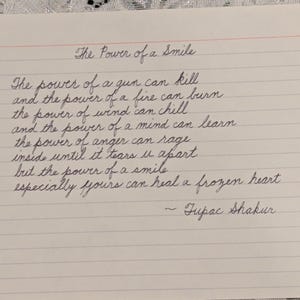 The Power of a Smile
The power of a gun can kill
and the power of a fire can burn
the power of wind can chill
and the power of a mind can learn
the power of anger can rage
inside until it tears u apart
but the power of a smile
especially yours can heal a frozen heart
~ Tupac Shakur